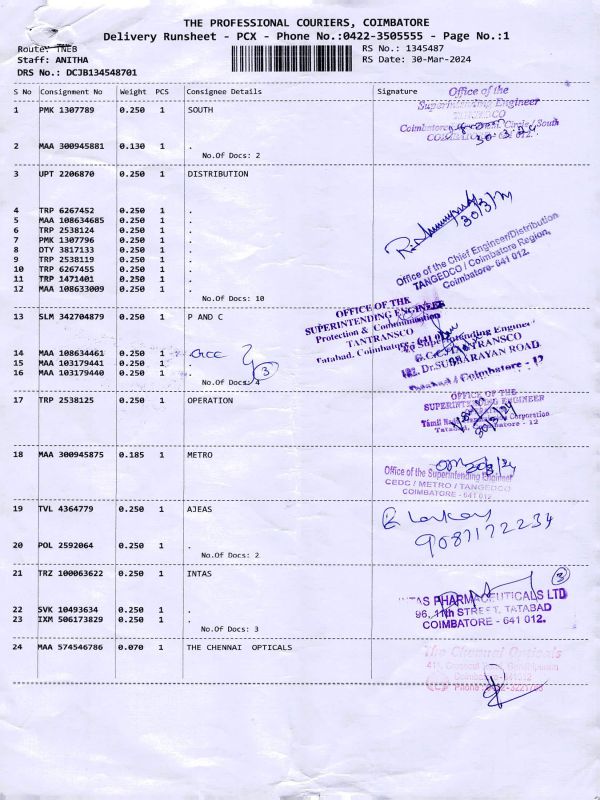 THE PROFESSIONAL COURIERS, COIMBATORE
Delivery Runsheet - PCX - Phone No.:0422-3505555 - Page No.:1
Route: TNEB
RS No.: 1345487
Staff: ANITHA
RS Date: 30-Mar-2024
DRS No.: DCJB134548701
S No Consignment No Weight PCS Consignee Details Signature
1 PMK 1307789 0.250 1 SOUTH
Office of the
Superintending Engineer
TANGEDCO
2 MAA 300945881 0.130 1 .
No.Of Docs: 2
3 UPT 2206870 0.250 1 DISTRIBUTION
4 TRP 6267452 0.250 1 .
5 MAA 108634685 0.250 1 .
6 TRP 2538124 0.250 1 .
7 PMK 1307796 0.250 1 .
8 DTY 3817133 0.250 1 .
9 TRP 2538119 0.250 1 .
10 TRP 6267455 0.250 1 .
11 TRP 1471401 0.250 1 .
12 MAA 108633009 0.250 1 .
No.Of Docs: 10
Office of the Chief Engineer/Distribution
TANGEDCO / Coimbatore Region,
Coimbatore- 641 012.
13 SLM 342704879 0.250 1 P AND C
OFFICE OF THE
SUPERINTENDING ENGINEER
Protection & Communication
TANTRANSCO
Tatabad, Coimbatore
14 MAA 108634461 0.250 1 .
15 MAA 103179441 0.250 1 .
16 MAA 103179440 0.250 1 .
3
No.Of Docs: 4
Dr.SUBBARAYAN ROAD
Coimbatore - 12
17 TRP 2538125 0.250 1 OPERATION
OFFICE OF THE
18 MAA 300945875 0.185 1 METRO
Office of the Superintending Engineer
CEDC / METRO / TANGEDCO
COIMBATORE - 641 012
19 TVL 4364779 0.250 1 AJEAS
9087172234
20 POL 2592064 0.250 1 .
No.Of Docs: 2
21 TRZ 100063622 0.250 1 INTAS
3
PHARMACEUTICALS LTD
96, 11th STREET, TATABAD
COIMBATORE - 641 012.
22 SVK 10493634 0.250 1 .
23 IXM 506173829 0.250 1 .
No.Of Docs: 3
24 MAA 574546786 0.070 1 THE CHENNAI OPTICALS
The Chennai Opticals